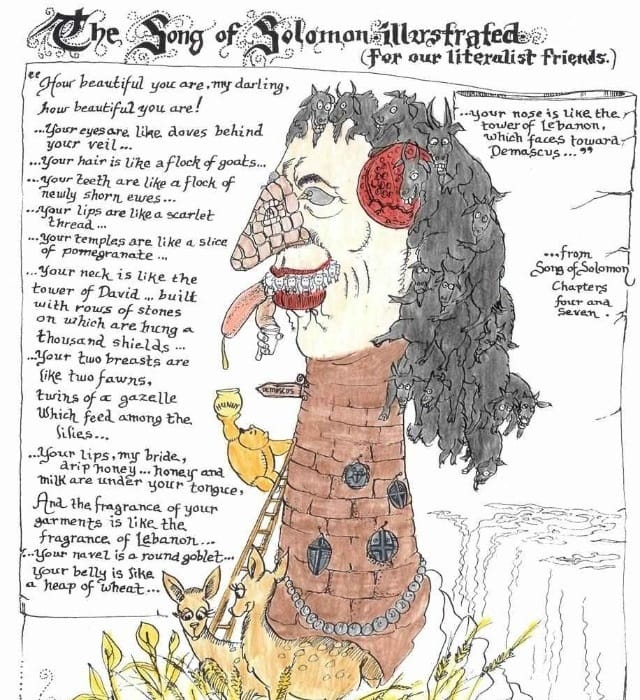 The Song of Solomon illustrated
(for our literalist friends.)
"How beautiful you are, my darling,
how beautiful you are!
...Your eyes are like doves behind
your veil...
...Your hair is like a flock of goats...
...Your teeth are like a flock of
newly shorn ewes...
...Your lips are like a scarlet
thread...
...Your temples are like a slice
of pomegranate...
...Your neck is like the
tower of David... built
with rows of stones
on which are hung a
thousand shields...
...Your two breasts are
like two fawns,
twins of a gazelle
Which feed among the
lilies...
...Your lips, my bride,
drip honey... honey and
milk are under your tongue,
And the fragrance of your
garments is like the
fragrance of Lebanon...
...Your navel is a round goblet...
Your belly is like
a heap of wheat...
...your nose is like the
tower of Lebanon,
which faces toward
Demascus..."
...from
Song of Solomon
Chapters
four and
seven.
DEMASCUS
HUNNY